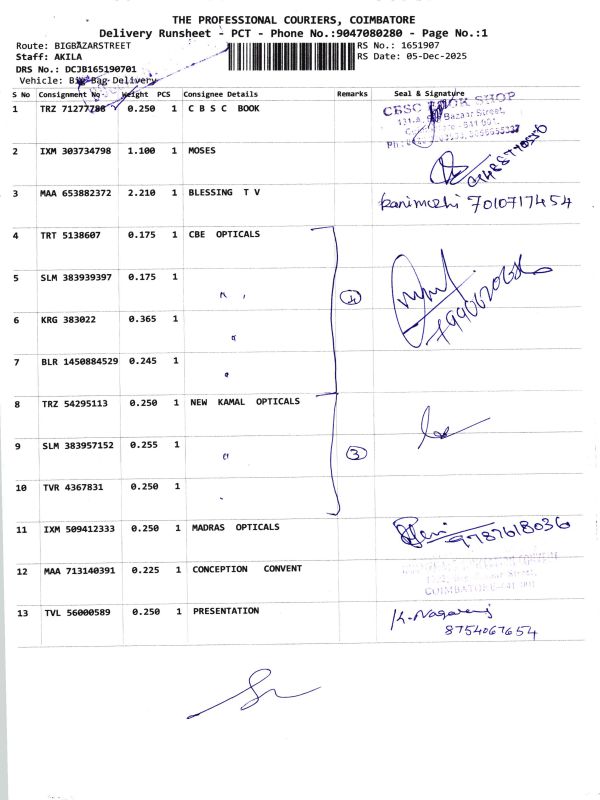 THE PROFESSIONAL COURIERS, COIMBATORE
Delivery Runsheet - PCT - Phone No.:9047080280 - Page No.:1
Route: BIGBAZARSTREET RS No.: 1651907
Staff: AKILA RS Date: 05-Dec-2025
DRS No.: DCJB165190701
Vehicle: Big Bag Delivery
S No Consignment No Weight PCS Consignee Details Remarks Seal & Signature
1 TRZ 71277788 0.250 1 C B S C BOOK
CBSC BOOK SHOP
Bazaar Street,
2 IXM 303734798 1.100 1 MOSES
3 MAA 653882372 2.210 1 BLESSING T V kanimozhi 7010717454
4 TRT 5138607 0.175 1 CBE OPTICALS
5 SLM 383939397 0.175 1 " 4
6 KRG 383022 0.365 1 "
7 BLR 1450884529 0.245 1 "
8 TRZ 54295113 0.250 1 NEW KAMAL OPTICALS
9 SLM 383957152 0.255 1 " 3
10 TVR 4367831 0.250 1 "
11 IXM 509412333 0.250 1 MADRAS OPTICALS 9787618036
12 MAA 713140391 0.225 1 CONCEPTION CONVENT
COIMBATORE-641 001
13 TVL 56000589 0.250 1 PRESENTATION K. Nagaraj
8754067654